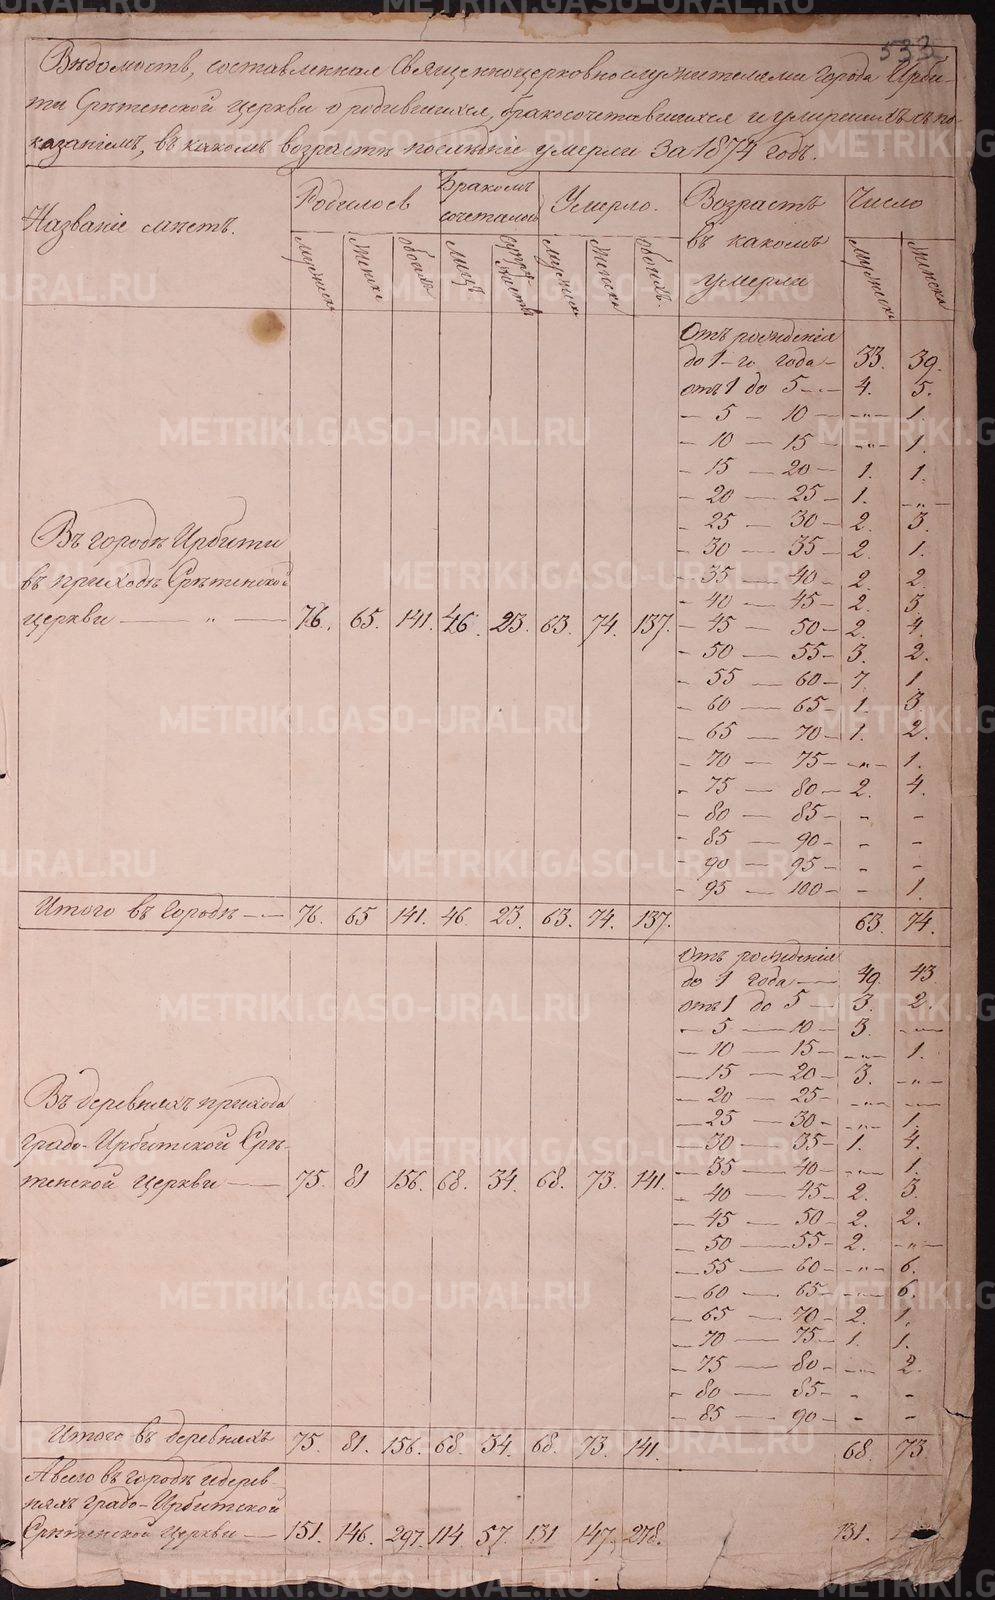 533
Вѣдомость, составленная Священноцерковнослужителями города Ирби-
ти Срѣтенской церкви о родившихся, бракосочетавшихся и умершихъ съ по-
казаніемъ, въ какомъ возрастѣ послѣдніе умерли За 1874 годъ.
Названіе мѣстъ. Родилось Бракомъ сочетались Умерло. Возрастъ въ какомъ умерли Число
мужеска женска обоихъ лицъ супружествъ мужеска женска обоихъ. мужеска женска
Отъ рожденія
до 1-го года – 33. 39.
отъ 1 до 5 — 4. 5.
– 5 – 10 — „ 1.
– 10 — 15 — „ 1.
– 15 — 20 – 1. 1.
– 20 — 25 – 1. „
– 25 — 30 – 2. 3.
– 30 — 35 – 2. 1.
– 35 — 40 – 2. 2.
– 40 — 45 – 2. 3.
– 45 — 50 – 2. 4.
– 50 — 55 – 3. 2.
– 55 — 60 – 7. 1
– 60 — 65 – 1. 3.
– 65 — 70 – 1. 2.
– 70 — 75 – „ 1.
– 75 — 80 – 2. 4.
– 80 — 85 – - -
– 85 — 90 – - -
– 90 — 95 – - -
– 95 — 100 – - 1.
Въ городѣ Ирбити
въ приходѣ Срѣтенской
церкви — „ — 76. 65. 141. 46. 23. 63. 74. 137.
Итого въ городѣ — 76. 65 141. 46 23. 63. 74. 137. 63. 74.
Отъ рожденія
до 1 года — 49. 43
отъ 1 до 5 — 3. 2.
– 5 — 10 – 3. „
– 10 — 15 – „ 1.
– 15 — 20 – 3. „
– 20 — 25 – „ „
– 25 — 30 – „ 1.
– 30 — 35 – 1. 4.
– 35 — 40 – „ 1.
– 40 — 45 – 2. 3.
– 45 — 50 – 2. 2.
– 50 — 55 – 2. „
– 55 — 60 – „ 6.
– 60 — 65 – „ 6.
– 65 — 70 – 2. 1.
– 70 — 75 – 1. 1.
– 75 — 80 – „ 2.
– 80 — 85 – - -
– 85 — 90 – - -
Въ деревняхъ прихода
градо-Ирбитской Срѣ-
тенской Церкви — 75. 81 156. 68. 34. 68. 73. 141.
Итого въ деревняхъ 75. 81. 156. 68. 34. 68. 73. 141. 68. 73.
А всего въ городѣ и дерев-
няхъ градо-Ирбитской
Срѣтенской Церкви — 151. 146. 297. 114. 57. 131 147. 278. 131.
METRIKI.GASO-URAL.RU